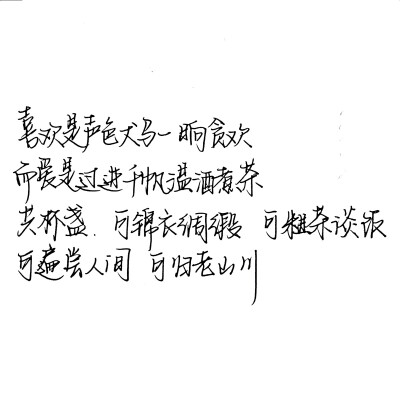 喜欢是声色犬马一晌贪欢
而爱是过进千帆温酒煮茶
共杯盏. 可锦衣绸缎 可粗茶谈饭
可遍尝人间 可归老山川